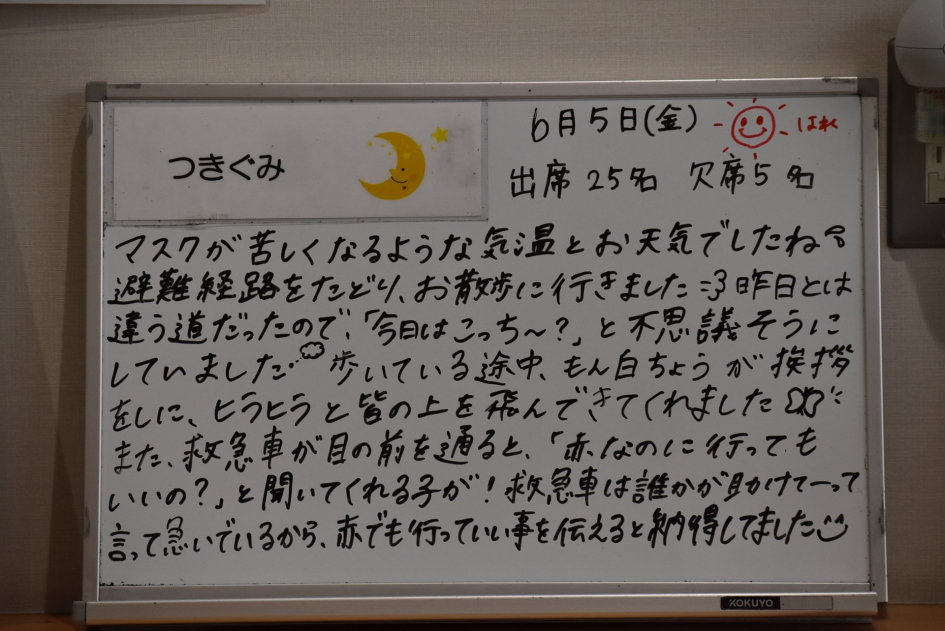 つきぐみ
6月5日(金) はれ
出席 25名 欠席5名
マスクが苦しくなるような気温とお天気でしたね。
避難経路をたどり、お散歩に行きました 昨日とは
違う道だったので、「今日はこっち〜?」と不思議そうに
していました… 歩いている途中、もん白ちょうが挨拶
をしに、ヒラヒラと皆の上を飛んできてくれました
また、救急車が目の前を通ると、「赤なのに行っても
いいの?」と聞いてくれる子が!救急車は誰かが助けてーって
言って急いでいるから、赤でも行っていい事を伝えると納得してました
KOKUYO